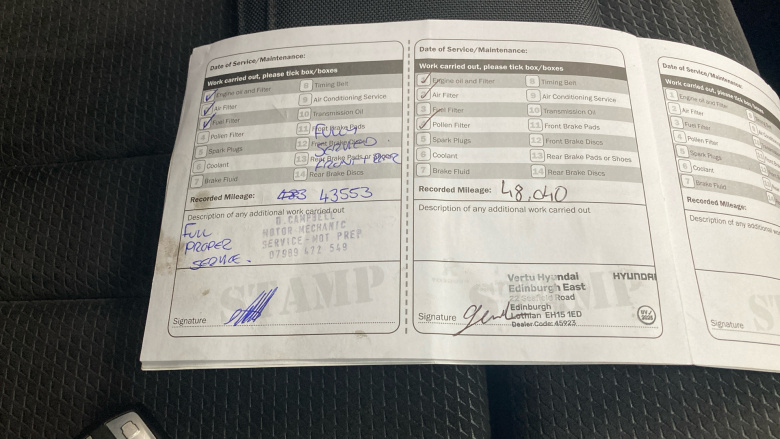 Date of Service/Maintenance:
Work carried out, please tick box/boxes
1 Engine oil and Filter
8 Timing Belt
2 Air Filter
9 Air Conditioning Service
3 Fuel Filter
10 Transmission Oil
4 Pollen Filter
11 Front Brake Pads
5 Spark Plugs
12 Front Brake Discs
6 Coolant
13 Rear Brake Pads or Shoes
7 Brake Fluid
14 Rear Brake Discs
FULLY
SERVICED
FRONT + REAR
Recorded Mileage: 43553
Description of any additional work carried out
FULL
PROPER
SERVICE.
D. CAMPBELL
MOTOR MECHANIC
SERVICE - MOT PREP
07989 472 549
STAMP
Signature
Date of Service/Maintenance:
Work carried out, please tick box/boxes
1 Engine oil and Filter
8 Timing Belt
2 Air Filter
9 Air Conditioning Service
3 Fuel Filter
10 Transmission Oil
4 Pollen Filter
11 Front Brake Pads
5 Spark Plugs
12 Front Brake Discs
6 Coolant
13 Rear Brake Pads or Shoes
7 Brake Fluid
14 Rear Brake Discs
Recorded Mileage: 48,040
Description of any additional work carried out
Vertu Hyundai
HYUNDAI
Edinburgh East
Road
Edinburgh
Lothian EH15 1ED
Dealer Code: 45923
STAMP
Signature
Date of Service/Maintenance:
Work carried out, please tick box
1 Engine oil and Filter
2 Air Filter
3 Fuel Filter
4 Pollen Filter
5 Spark Plugs
6 Coolant
7 Brake Fluid
Recorded Mileage:
Description of any additional wo
Signature